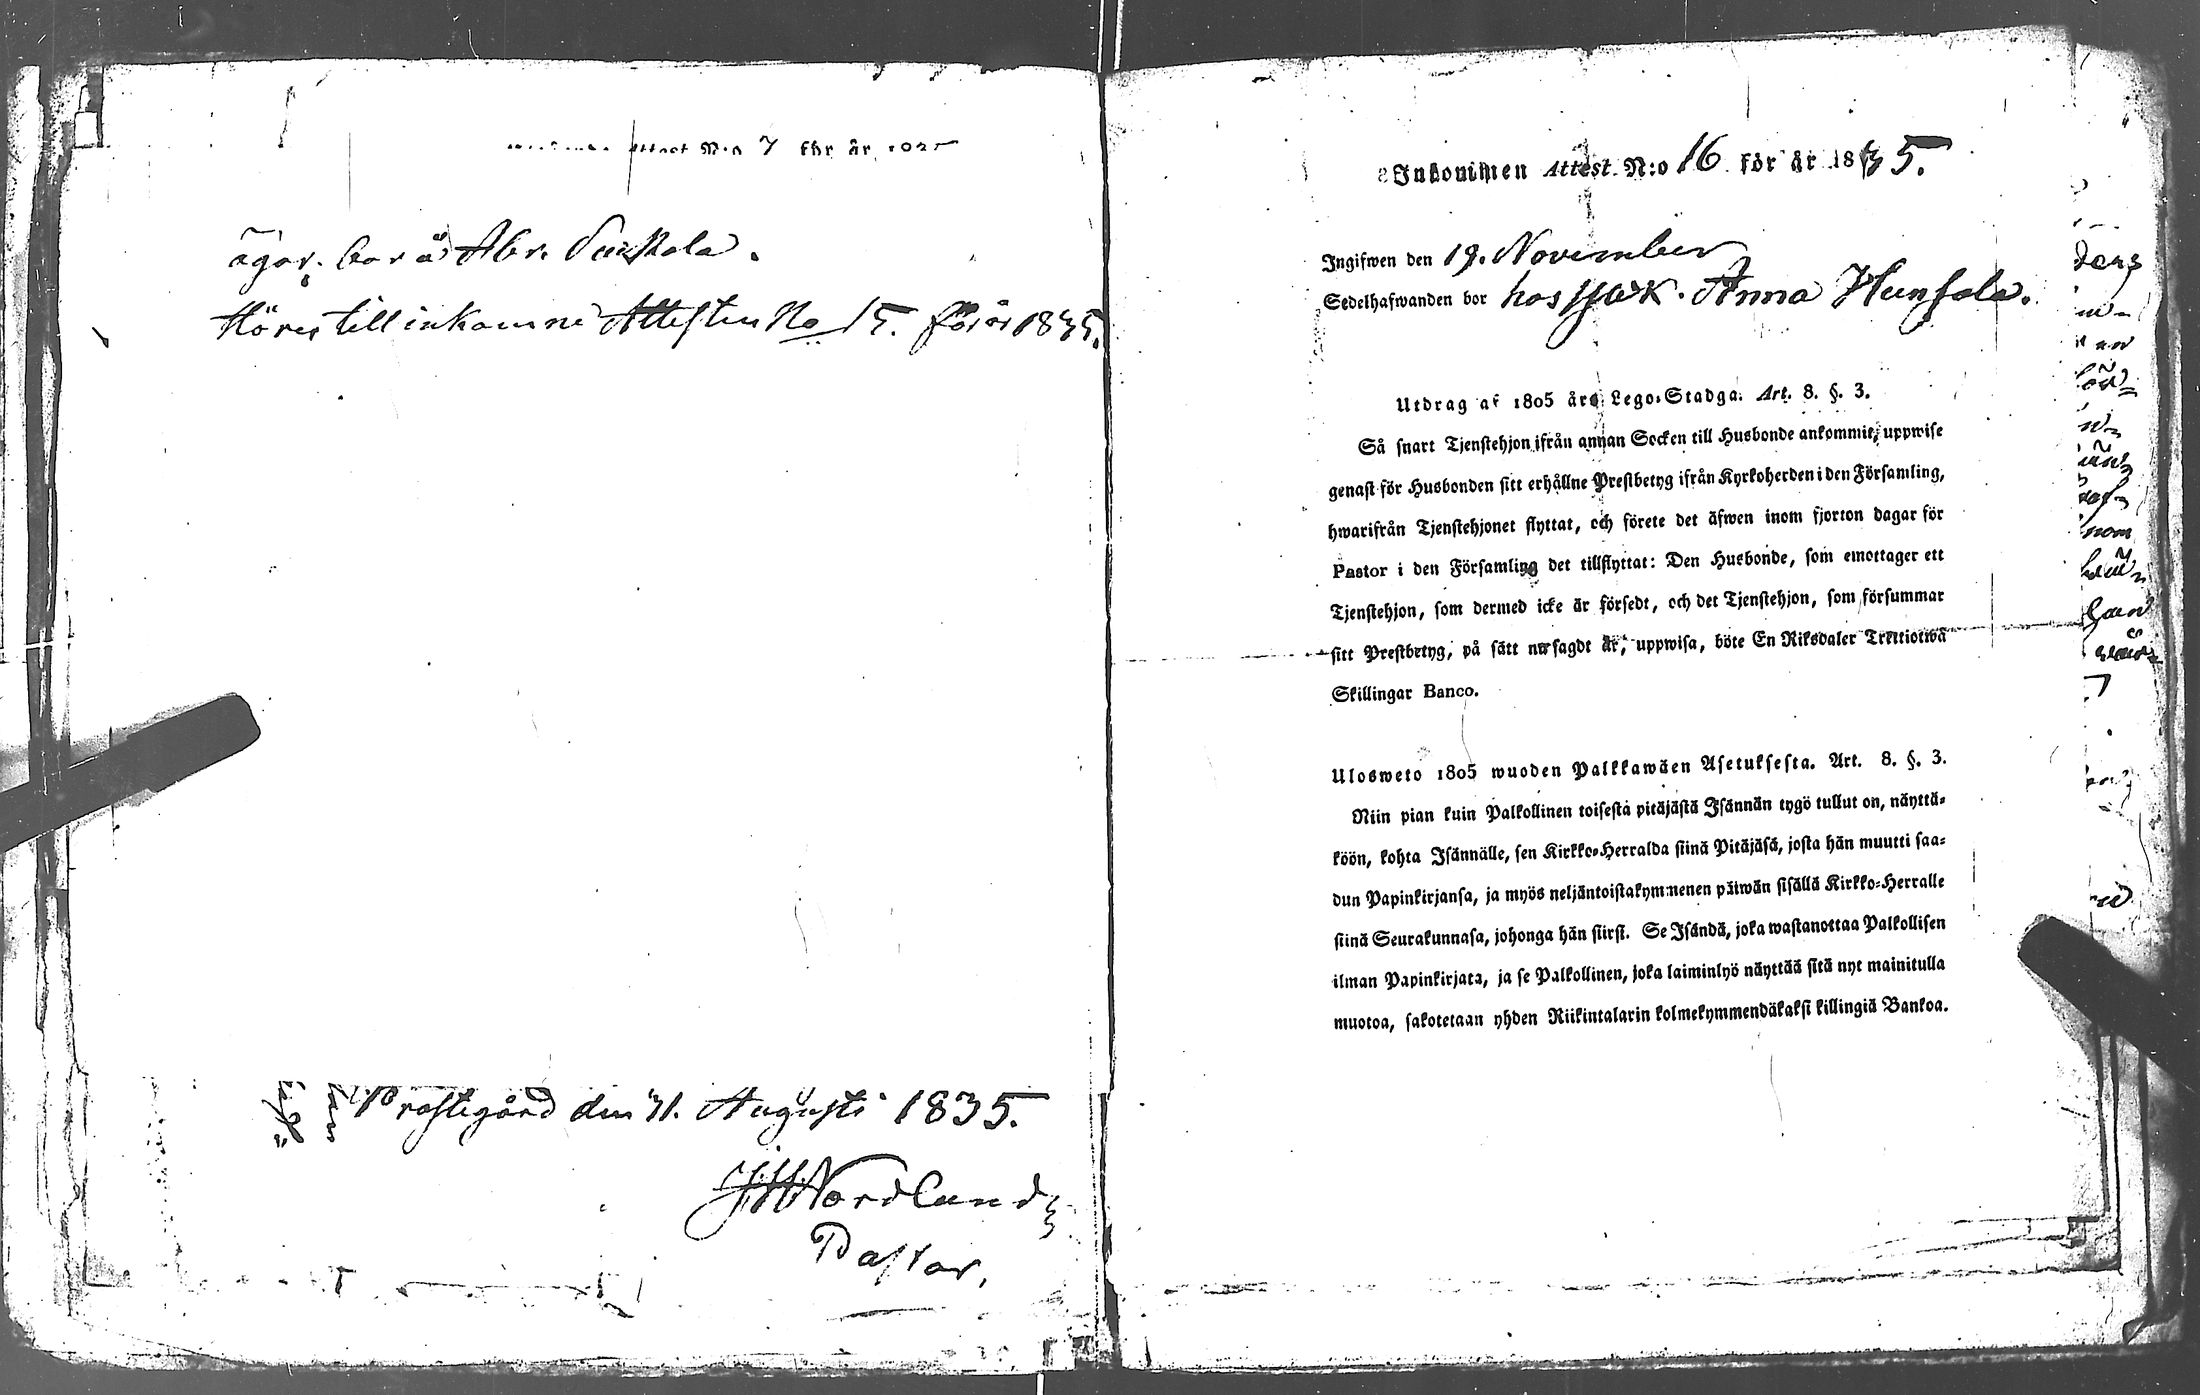 Attest N:o 7 för år
ägar. bor å Abr.
Hörer till inkomne Attesten No 15. för år 1835.
Prostegård den 31. Augusti 1835.
Nordlund
Pastor.
Inkommen Attest. N:o 16 för år 1835.
Ingifwen den 19. November
Sedelhafwanden bor hos Anna
Utdrag af 1805 års Lego-Stadga. Art. 8. §. 3.
Så snart Tjenstehjon ifrån annan Socken till Husbonde ankommit, uppwise
genast för Husbonden sitt erhållne Prestbetyg ifrån Kyrkoherden i den Församling,
hwarifrån Tjenstehjonet flyttat, och förete det äfwen inom fjorton dagar för
Pastor i den Församling det tillflyttat: Den Husbonde, som emottager ett
Tjenstehjon, som dermed icke är försedt, och det Tjenstehjon, som försummar
sitt Prestbetyg, på sätt nu sagdt är, uppwisa, böte En Riksdaler Trettiotwå
Skillingar Banco.
Ulosweto 1805 wuoden Palkkawäen Asetuksesta. Art. 8. §. 3.
Niin pian kuin Palkollinen toisesta pitäjästä Isännän tygö tullut on, näyttä-
köön, kohta Isännälle, sen Kirkko-Herralda siinä Pitäjäsä, josta hän muutti saa-
dun Papinkirjansa, ja myös neljäntoistakymmenen päiwän sisällä Kirkko-Herralle
siinä Seurakunnasa, johonga hän siirsi. Se Isändä, joka wastanottaa Palkollisen
ilman Papinkirjata, ja se Palkollinen, joka laiminlyö näyttää sitä nyt mainitulla
muotoa, sakotetaan yhden Riikintalarin kolmekymmendäkaksi killingiä Bankoa.